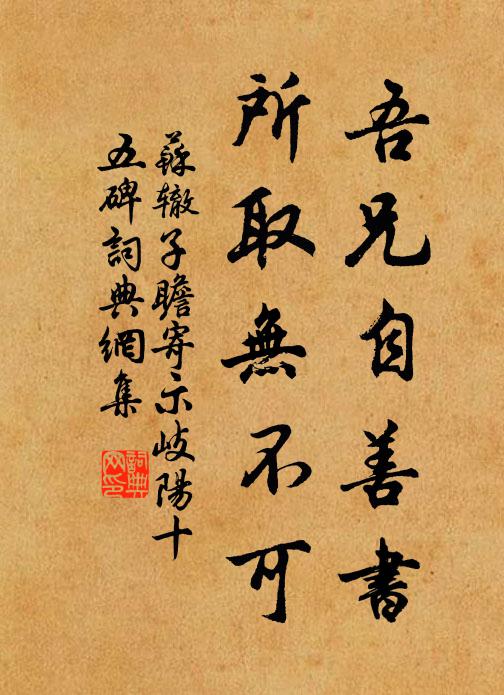 吾兄自善書
所取無不可
蘇轍子瞻寄示岐陽十
五碑詞典網集
詞典网印